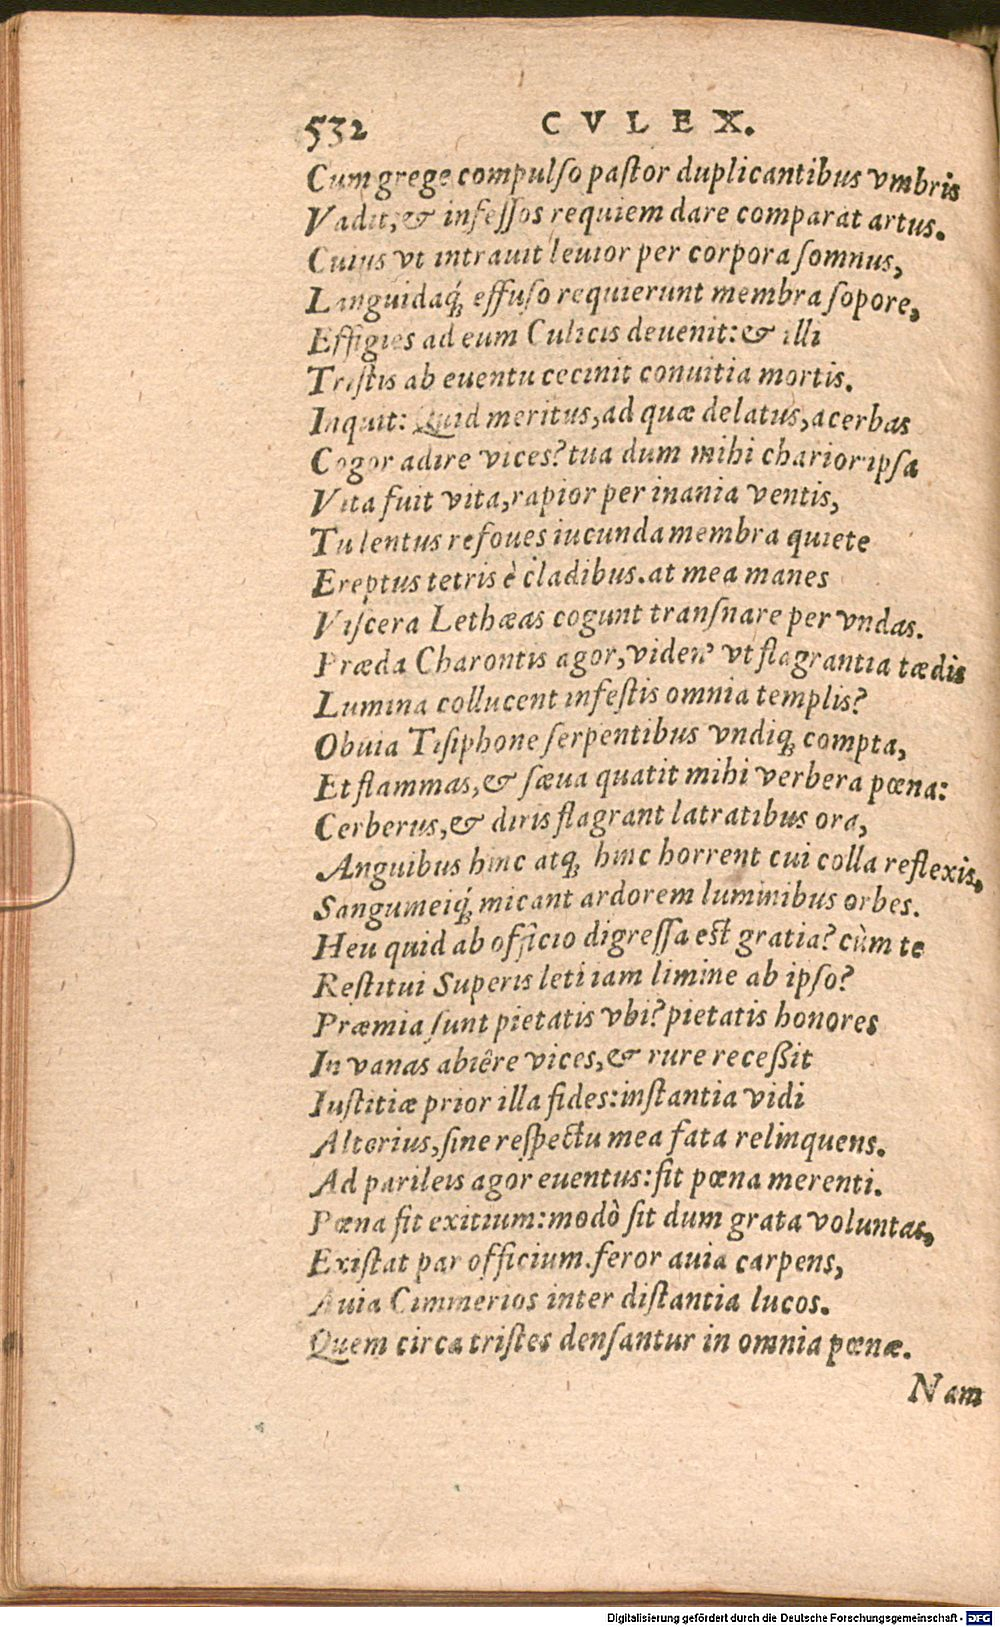 532 CVLEX.
Cum grege compulſo paſtor duplicantibus vmbris
Vadit, & infeſſos requiem dare comparat artus.
Cuius vt intrauit leuior per corpora ſomnus,
Languidaq́; effuſo requierunt membra ſopore,
Effigies ad eum Culicis deuenit: & illi
Triſtis ab euentu cecinit conuitia mortis.
Inquit: Quid meritus, ad quæ delatus, acerbas
Cogor adire vices? tua dum mihi charior ipſa
Vita fuit vita, rapior per inania ventis,
Tu lentus refoues iucunda membra quiete
Ereptus tetris è cladibus. at mea manes
Viſcera Lethæas cogunt tranſnare per vndas.
Præda Charontis agor, viden' vt flagrantia tædis
Lumina collucent infeſtis omnia templis?
Obuia Tiſiphone ſerpentibus vndiq; compta,
Et flammas, & ſæua quatit mihi verbera pœna:
Cerberus, & diris flagrant latratibus ora,
Anguibus hinc atq; hinc horrent cui colla reflexis,
Sanguineiq́; micant ardorem luminibus orbes.
Heu quid ab officio digreſſa eſt gratia? cùm te
Reſtitui Superis leti iam limine ab ipſo?
Præmia ſunt pietatis vbi? pietatis honores
In vanas abiêre vices, & rure receßit
Iuſtitiæ prior illa fides: inſtantia vidi
Alterius, ſine reſpectu mea fata relinquens.
Ad parileis agor euentus: fit pœna merenti.
Pœna fit exitium: modò ſit dum grata voluntas,
Exiſtat par officium. feror auia carpens,
Auia Cimmerios inter diſtantia lucos.
Quem circa triſtes denſantur in omnia pœnæ.
Nam
Digitalisierung gefördert durch die Deutsche Forschungsgemeinschaft - DFG